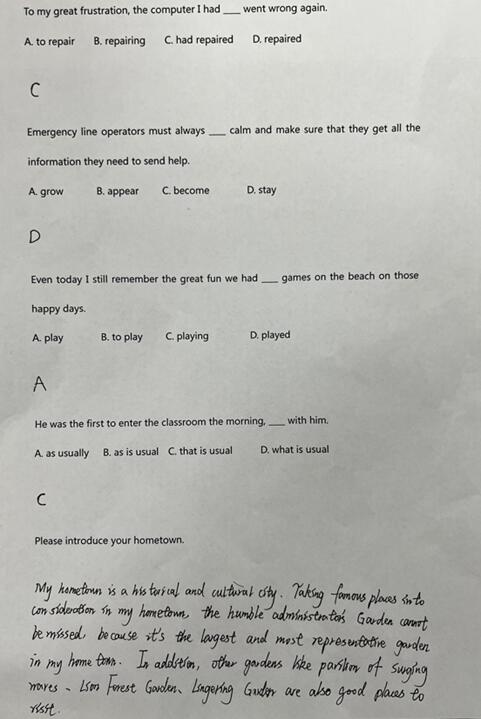 To my great frustration, the computer I had ___ went wrong again.
A. to repair B. repairing C. had repaired D. repaired
C
Emergency line operators must always ___ calm and make sure that they get all the
information they need to send help.
A. grow B. appear C. become D. stay
D
Even today I still remember the great fun we had ___ games on the beach on those
happy days.
A. play B. to play C. playing D. played
A
He was the first to enter the classroom the morning, ___ with him.
A. as usually B. as is usual C. that is usual D. what is usual
C
Please introduce your hometown.
My hometown is a historical and cultural city. Taking famous places into
consideration in my hometown, the humble administrator's Garden cannot
be missed, because it's the largest and most representative garden
in my home town. In addition, other gardens like pavilion of surging
waves、Lion Forest Garden、Lingering Garden are also good places to
visit.